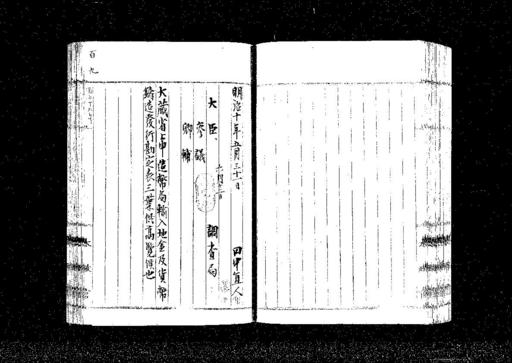 明治十年五月三十一日 田中直人
六月二日
大臣 調査局
参議
卿輔
大蔵省上申造幣局輸入地金及貨幣
鋳造発行勘定表三葉供高覧候也
百九